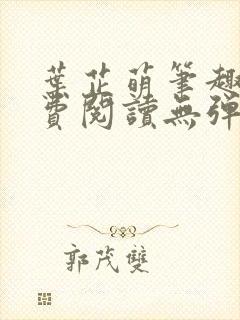 葉芷萌筆趣
費閱讀無彈
郭茂雙